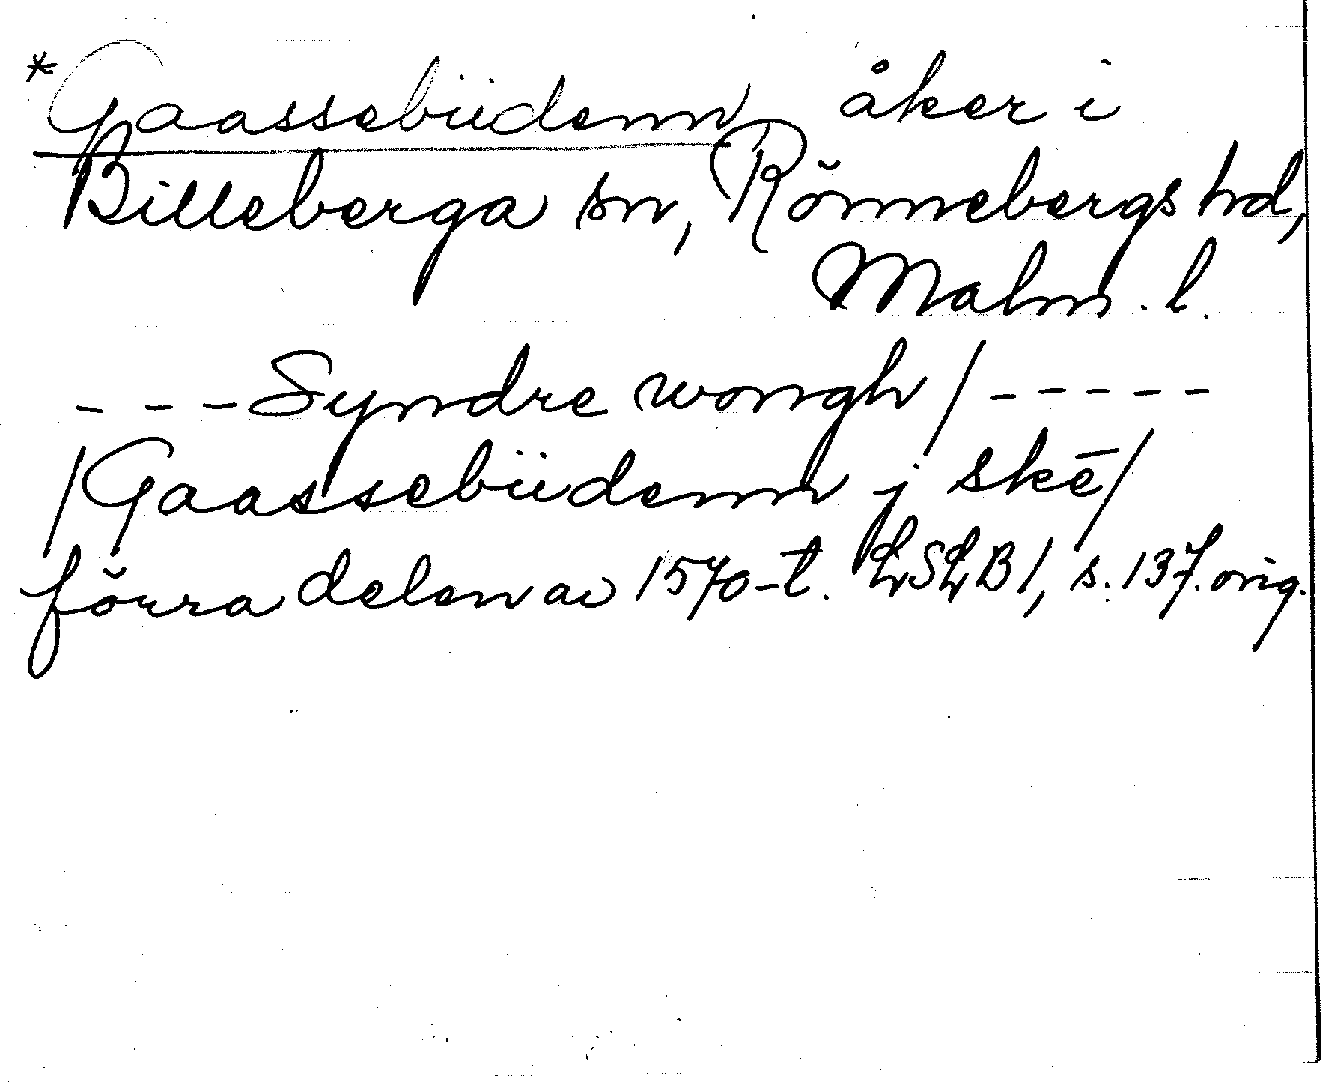 *Gaassebüdenn åker i
Billeberga sn, Rönnebergs hd,
Malm. l.
---Syndre wongh/-----
/Gaassebüdenn j skē/
förra delen av 1570-t. LSLB1, s. 137. orig.